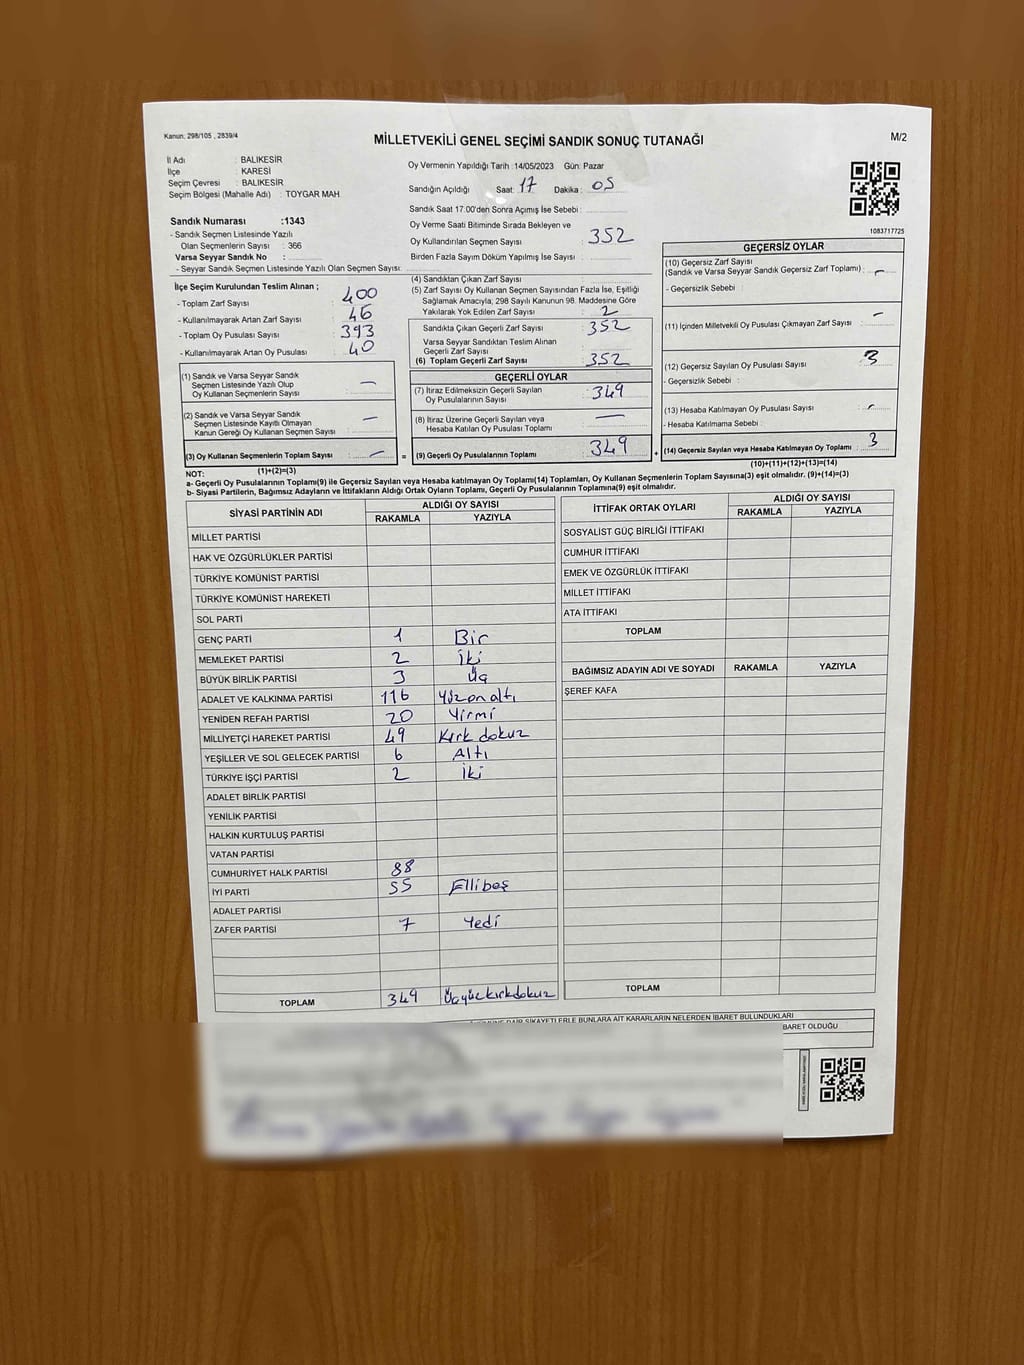 Kanun: 298/105 , 2839/4
MİLLETVEKİLİ GENEL SEÇİMİ SANDIK SONUÇ TUTANAĞI
M/2
İl Adı : BALIKESİR
İlçe : KARESİ
Seçim Çevresi : BALIKESİR
Seçim Bölgesi (Mahalle Adı) : TOYGAR MAH.
Sandık Numarası :1343
- Sandık Seçmen Listesinde Yazılı
Olan Seçmenlerin Sayısı : 366
Varsa Seyyar Sandık No :
- Seyyar Sandık Seçmen Listesinde Yazılı Olan Seçmen Sayısı:
Oy Vermenin Yapıldığı Tarih :14/05/2023 Gün: Pazar
Sandığın Açıldığı Saat: 17 Dakika : 05
Sandık Saat 17:00'den Sonra Açımış İse Sebebi :
Oy Verme Saati Bitiminde Sırada Bekleyen ve
Oy Kullandırılan Seçmen Sayısı : 352
Birden Fazla Sayım Döküm Yapılmış İse Sayısı :
1083717725
İlçe Seçim Kurulundan Teslim Alınan ;
- Toplam Zarf Sayısı : 400
- Kullanılmayarak Artan Zarf Sayısı : 46
- Toplam Oy Pusulası Sayısı : 393
- Kullanılmayarak Artan Oy Pusulası : 40
(1) Sandık ve Varsa Seyyar Sandık
Seçmen Listesinde Yazılı Olup
Oy Kullanan Seçmenlerin Sayısı : —
(2) Sandık ve Varsa Seyyar Sandık
Seçmen Listesinde Kayıtlı Olmayan
Kanun Gereği Oy Kullanan Seçmen Sayısı : —
(3) Oy Kullanan Seçmenlerin Toplam Sayısı : —
(1)+(2)=(3)
(4) Sandıktan Çıkan Zarf Sayısı :
(5) Zarf Sayısı Oy Kullanan Seçmen Sayısından Fazla İse, Eşitliği
Sağlamak Amacıyla; 298 Sayılı Kanunun 98. Maddesine Göre
Yakılarak Yok Edilen Zarf Sayısı : 2
Sandıkta Çıkan Geçerli Zarf Sayısı : 352
Varsa Seyyar Sandıktan Teslim Alınan
Geçerli Zarf Sayısı :
(6) Toplam Geçerli Zarf Sayısı : 352
GEÇERLİ OYLAR
(7) İtiraz Edilmeksizin Geçerli Sayılan
Oy Pusulalarının Sayısı : 349
(8) İtiraz Üzerine Geçerli Sayılan veya
Hesaba Katılan Oy Pusulası Toplamı : —
= (9) Geçerli Oy Pusulalarının Toplamı : 349 +
GEÇERSİZ OYLAR
(10) Geçersiz Zarf Sayısı
(Sandık ve Varsa Seyyar Sandık Geçersiz Zarf Toplamı) : —
- Geçersizlik Sebebi :
(11) İçinden Milletvekili Oy Pusulası Çıkmayan Zarf Sayısı : —
(12) Geçersiz Sayılan Oy Pusulası Sayısı : 3
- Geçersizlik Sebebi :
(13) Hesaba Katılmayan Oy Pusulası Sayısı : —
- Hesaba Katılmama Sebebi :
(14) Geçersiz Sayılan veya Hesaba Katılmayan Oy Toplamı : 3
(10)+(11)+(12)+(13)=(14)
NOT:
a- Geçerli Oy Pusulalarının Toplamı(9) ile Geçersiz Sayılan veya Hesaba katılmayan Oy Toplamı(14) Toplamları, Oy Kullanan Seçmenlerin Toplam Sayısına(3) eşit olmalıdır. (9)+(14)=(3)
b- Siyasi Partilerin, Bağımsız Adayların ve İttifakların Aldığı Ortak Oyların Toplamı, Geçerli Oy Pusulalarının Toplamına(9) eşit olmalıdır.
SİYASİ PARTİNİN ADI ALDIĞI OY SAYISI
RAKAMLA YAZIYLA
MİLLET PARTİSİ
HAK VE ÖZGÜRLÜKLER PARTİSİ
TÜRKİYE KOMÜNİST PARTİSİ
TÜRKİYE KOMÜNİST HAREKETİ
SOL PARTİ
GENÇ PARTİ 1 Bir
MEMLEKET PARTİSİ 2 İki
BÜYÜK BİRLİK PARTİSİ 3 Üç
ADALET VE KALKINMA PARTİSİ 116 Yüzonaltı
YENİDEN REFAH PARTİSİ 20 Yirmi
MİLLİYETÇİ HAREKET PARTİSİ 49 Kırk dokuz
YEŞİLLER VE SOL GELECEK PARTİSİ 6 Altı
TÜRKİYE İŞÇİ PARTİSİ 2 İki
ADALET BİRLİK PARTİSİ
YENİLİK PARTİSİ
HALKIN KURTULUŞ PARTİSİ
VATAN PARTİSİ
CUMHURİYET HALK PARTİSİ 88
İYİ PARTİ 55 Ellibeş
ADALET PARTİSİ
ZAFER PARTİSİ 7 Yedi
TOPLAM 349 Üçyüzkırkdokuz
İTTİFAK ORTAK OYLARI ALDIĞI OY SAYISI
RAKAMLA YAZIYLA
SOSYALİST GÜÇ BİRLİĞİ İTTİFAKI
CUMHUR İTTİFAKI
EMEK VE ÖZGÜRLÜK İTTİFAKI
MİLLET İTTİFAKI
ATA İTTİFAKI
TOPLAM
BAĞIMSIZ ADAYIN ADI VE SOYADI RAKAMLA YAZIYLA
ŞEREF KAFA
TOPLAM
ŞİKAYETLERLE BUNLARA AİT KARARLARIN NELERDEN İBARET BULUNDUKLARI
BARET OLDUĞU